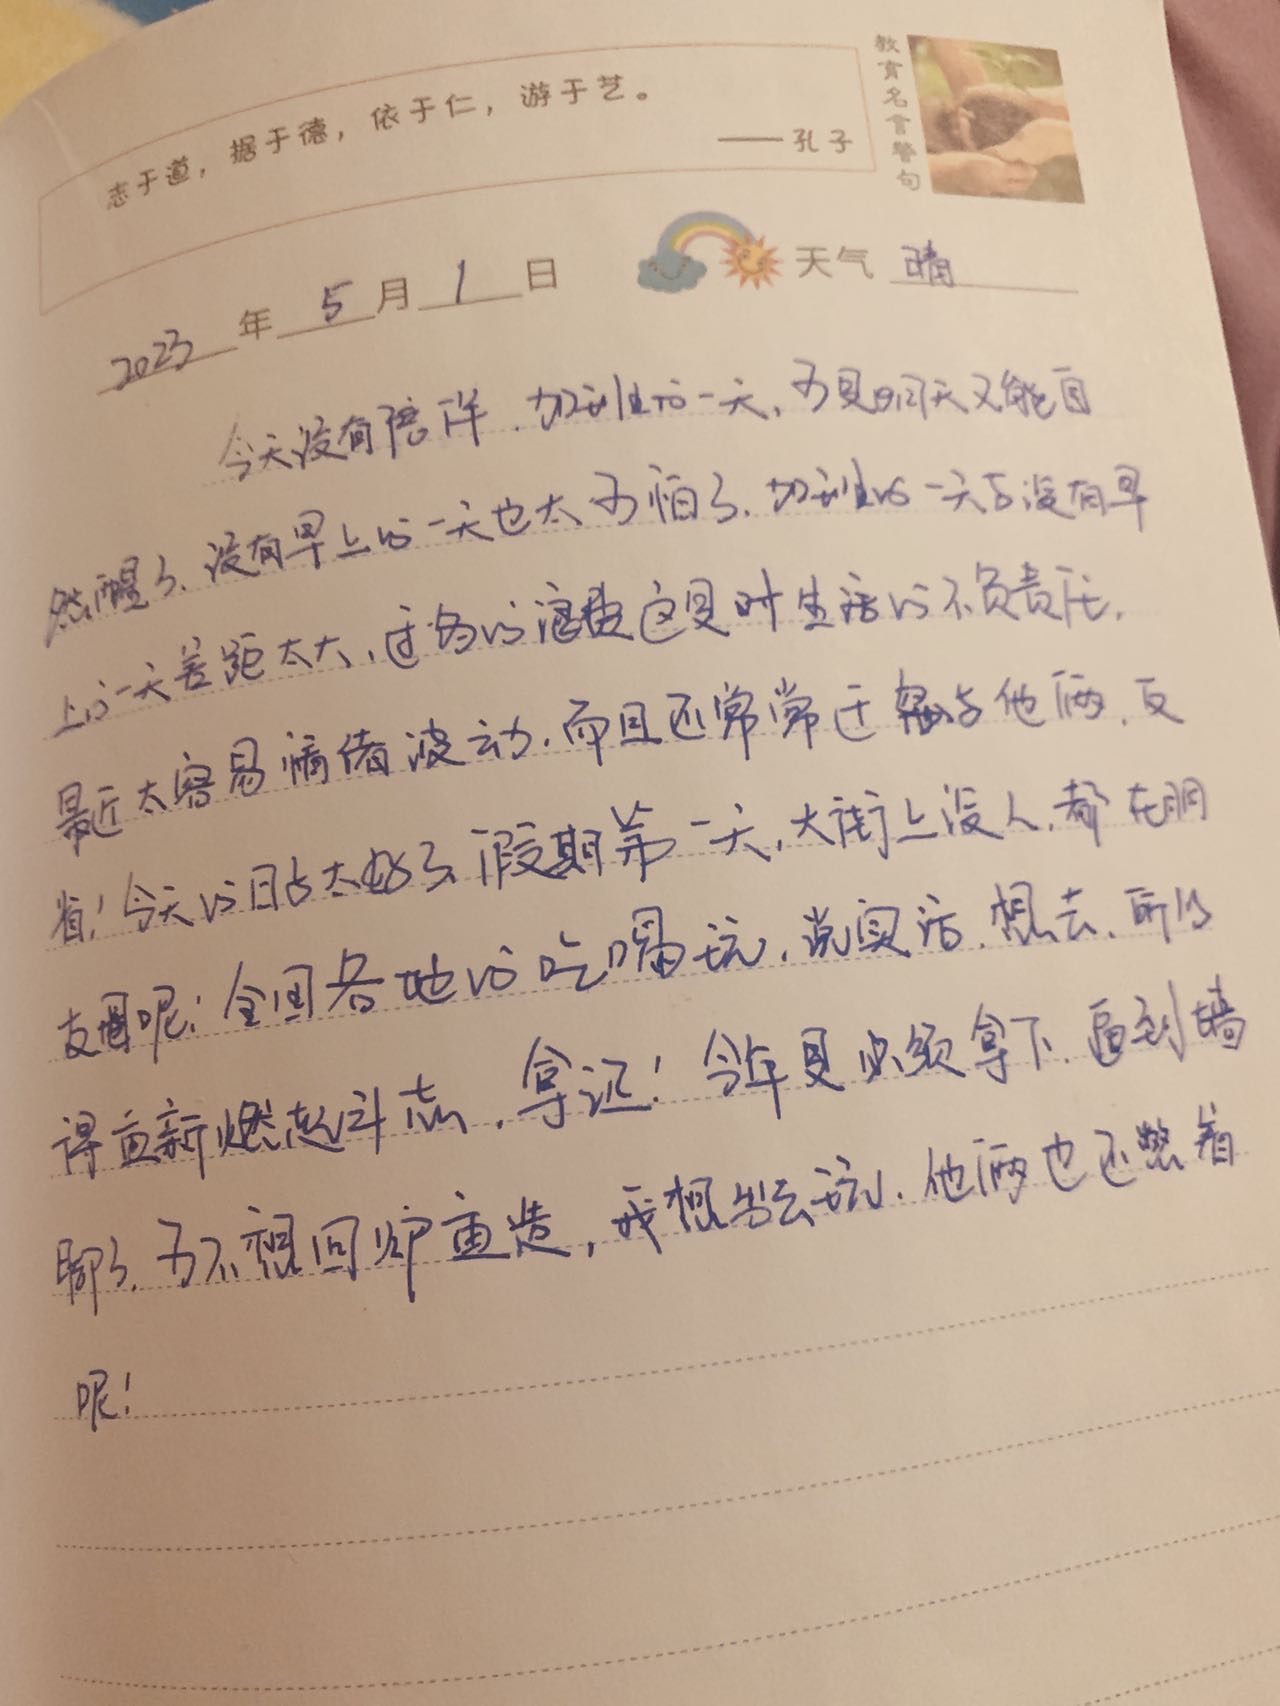 志于道，据于德，依于仁，游于艺。
——孔子
教育名言警句
2023年5月1日 天气 晴
今天没有陪伴，加班的一天，可是明天又能自
然醒了，没有早上的一天也太可怕了，的一天与没有早
上的一天差距太大，过多的浪费这是对生活的不负责任，
最近太容易情绪波动，而且还常常迁怒与他俩，反
省！今天的日子太好了，假期第一天，大街上没人，都在朋
友圈呢！全国各地的吃喝玩，说实话，想去，所以
得重新燃起斗志，拿证！今年是必须拿下，逼到墙
脚了，可不想回炉重造，我想出去玩，他俩也还憋着
呢！